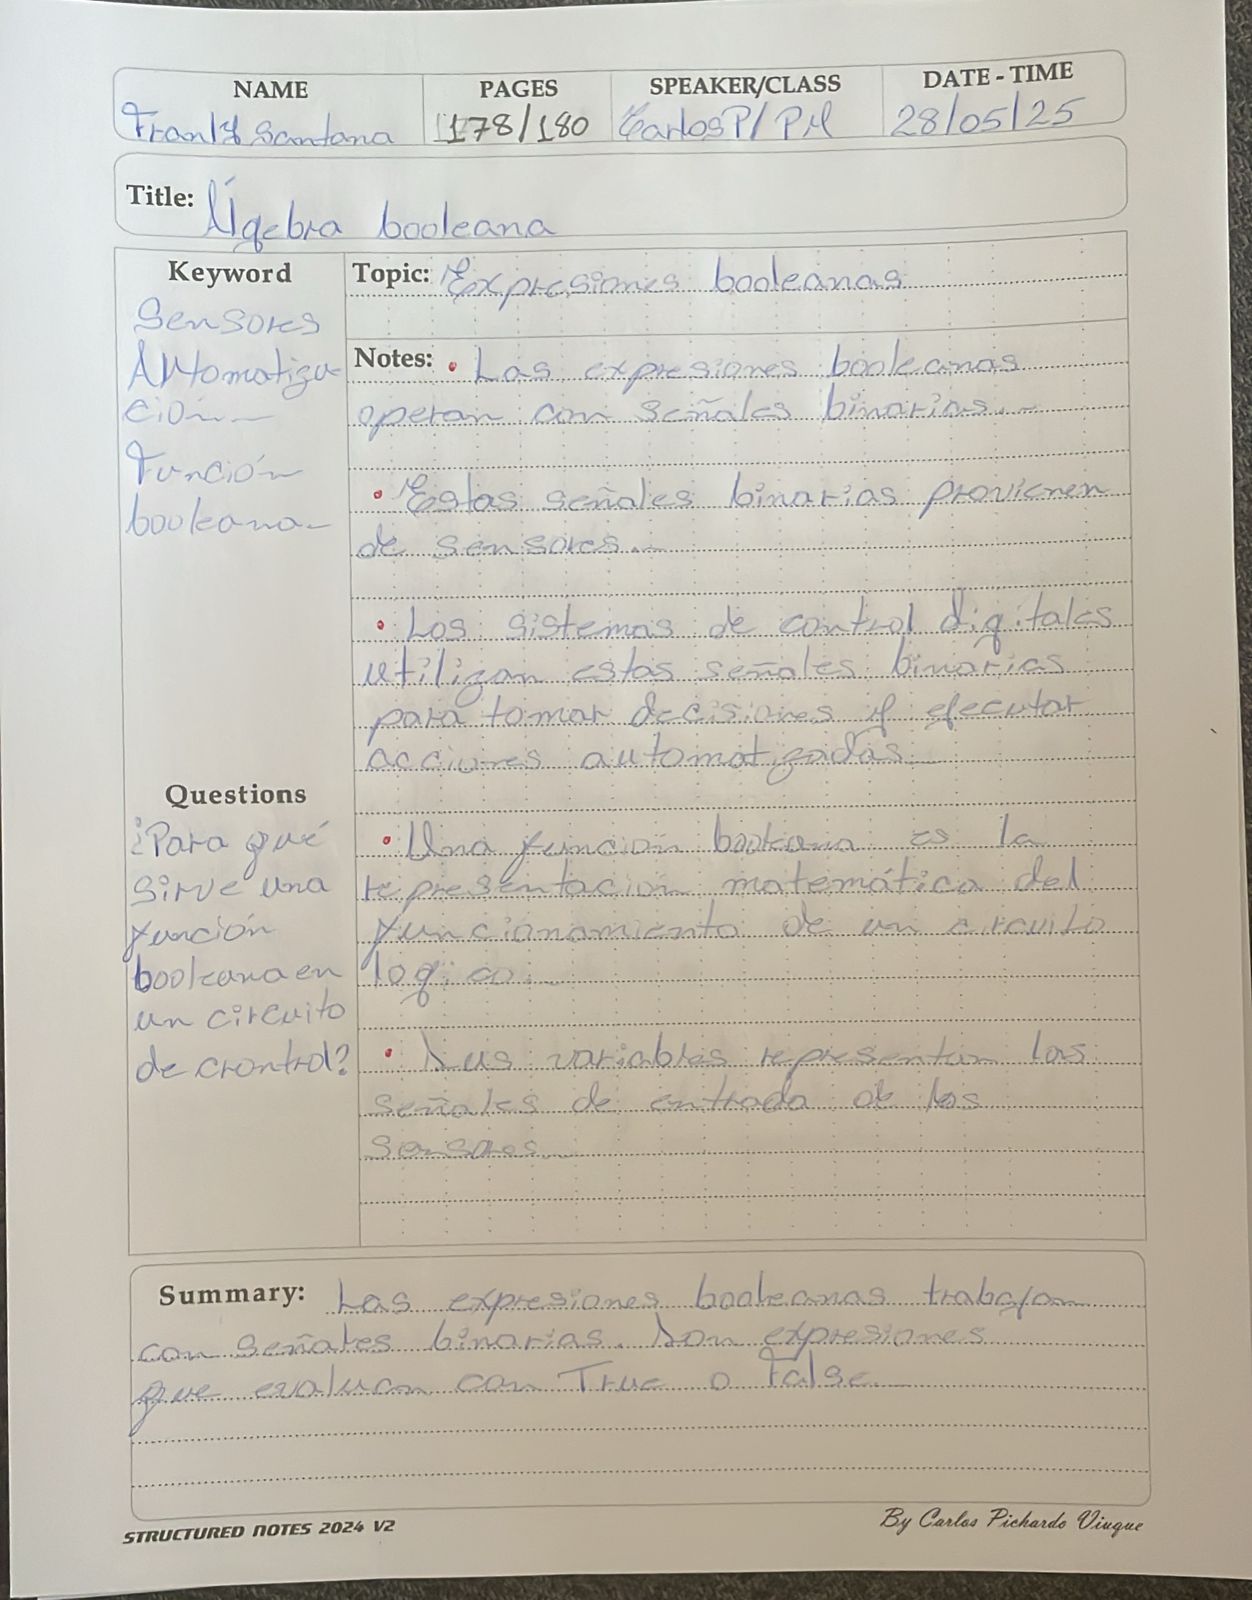 NAME PAGES SPEAKER/CLASS DATE - TIME
Frankl Santana 178/180 Carlos P/ PM 28/05/25
Title: Álgebra booleana
Keyword
Sensores
Automatiza-
ción
Función
booleana
Topic: Expresiones booleanas
Notes: • Las expresiones booleanas
operan con señales binarias.
• Estas señales binarias provienen
de sensores.
• Los sistemas de control digitales
utilizan estas señales binarias
para tomar decisiones y ejecutar
acciones automatizadas
Questions
¿Para qué
sirve una
función
booleana en
un circuito
de crontrol?
• Una función booleana es la
representación matemática del
funcionamiento de un circuito
logico.
• Sus variables representan las
señales de entrada de los
sensores.
Summary: Las expresiones booleanas trabajan
con señales binarias. Son expresiones
que evaluan con True o False.
STRUCTURED NOTES 2024 V2
By Carlos Pichardo Viuque